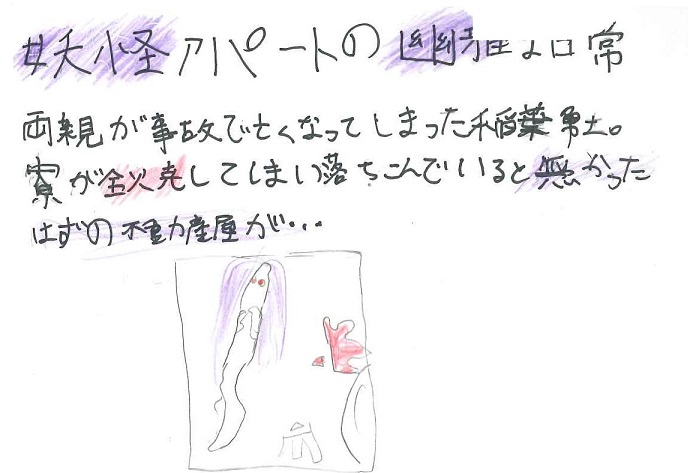 妖怪アパートの幽雅な日常
両親が事故で亡くなってしまった稲葉夕士。
寮が全焼してしまい落ちこんでいると無かった
はずの不動産屋が・・・